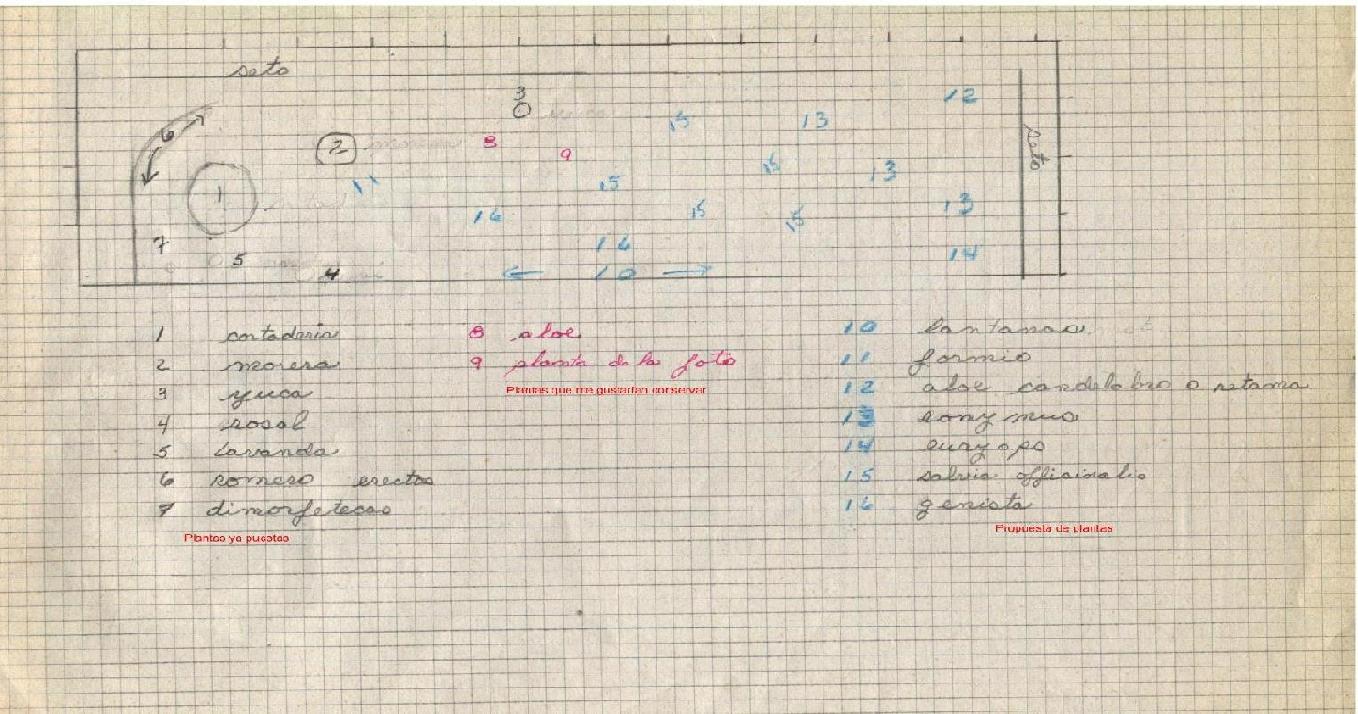 seto
3
12
6
2
8
9
15
13
seto
1
11
15
15
13
16
15
15
13
7
5
4
16
10
14
1 cortaderia
2 morera
3 yuca
4 rosal
5 lavanda
6 romero erectos
7 dimorfetecas
Plantas ya puestas
8 aloe
9 planta de la foto
Plantas que me gustarian conservar
10 lantanas
11 formio
12 aloe candelabro o retama
13 eonymus
14 euryops
15 salvia officinalis
16 genista
Propuesta de plantas